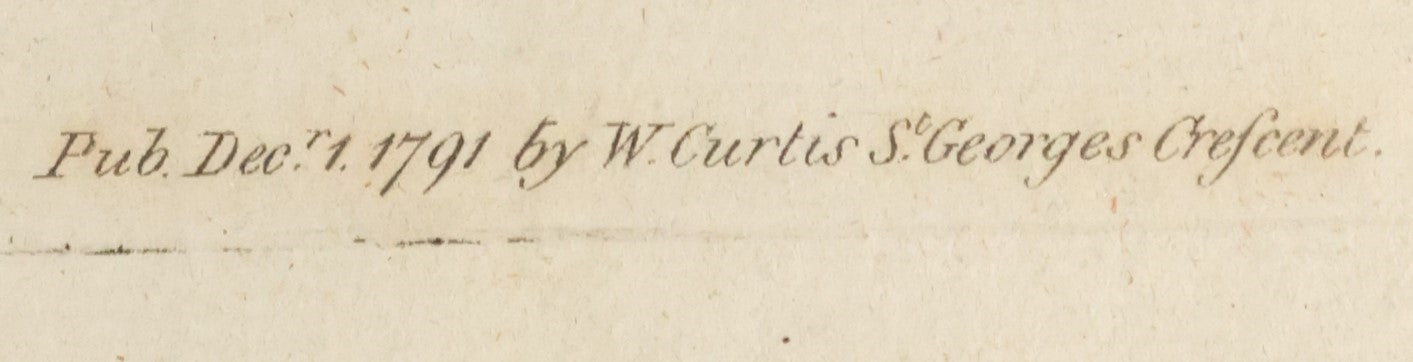 Pub. Dec.ʳ 1. 1791 by W. Curtis S.ᵗ Georges Creſcent.